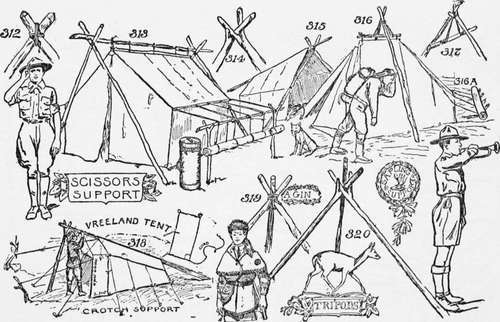 312
313
314
315
316
317
316A
SCISSORS
SUPPORT
VREELAND TENT
318
CROTCH SUPPORT
319
A GIN
320
TRIPODS